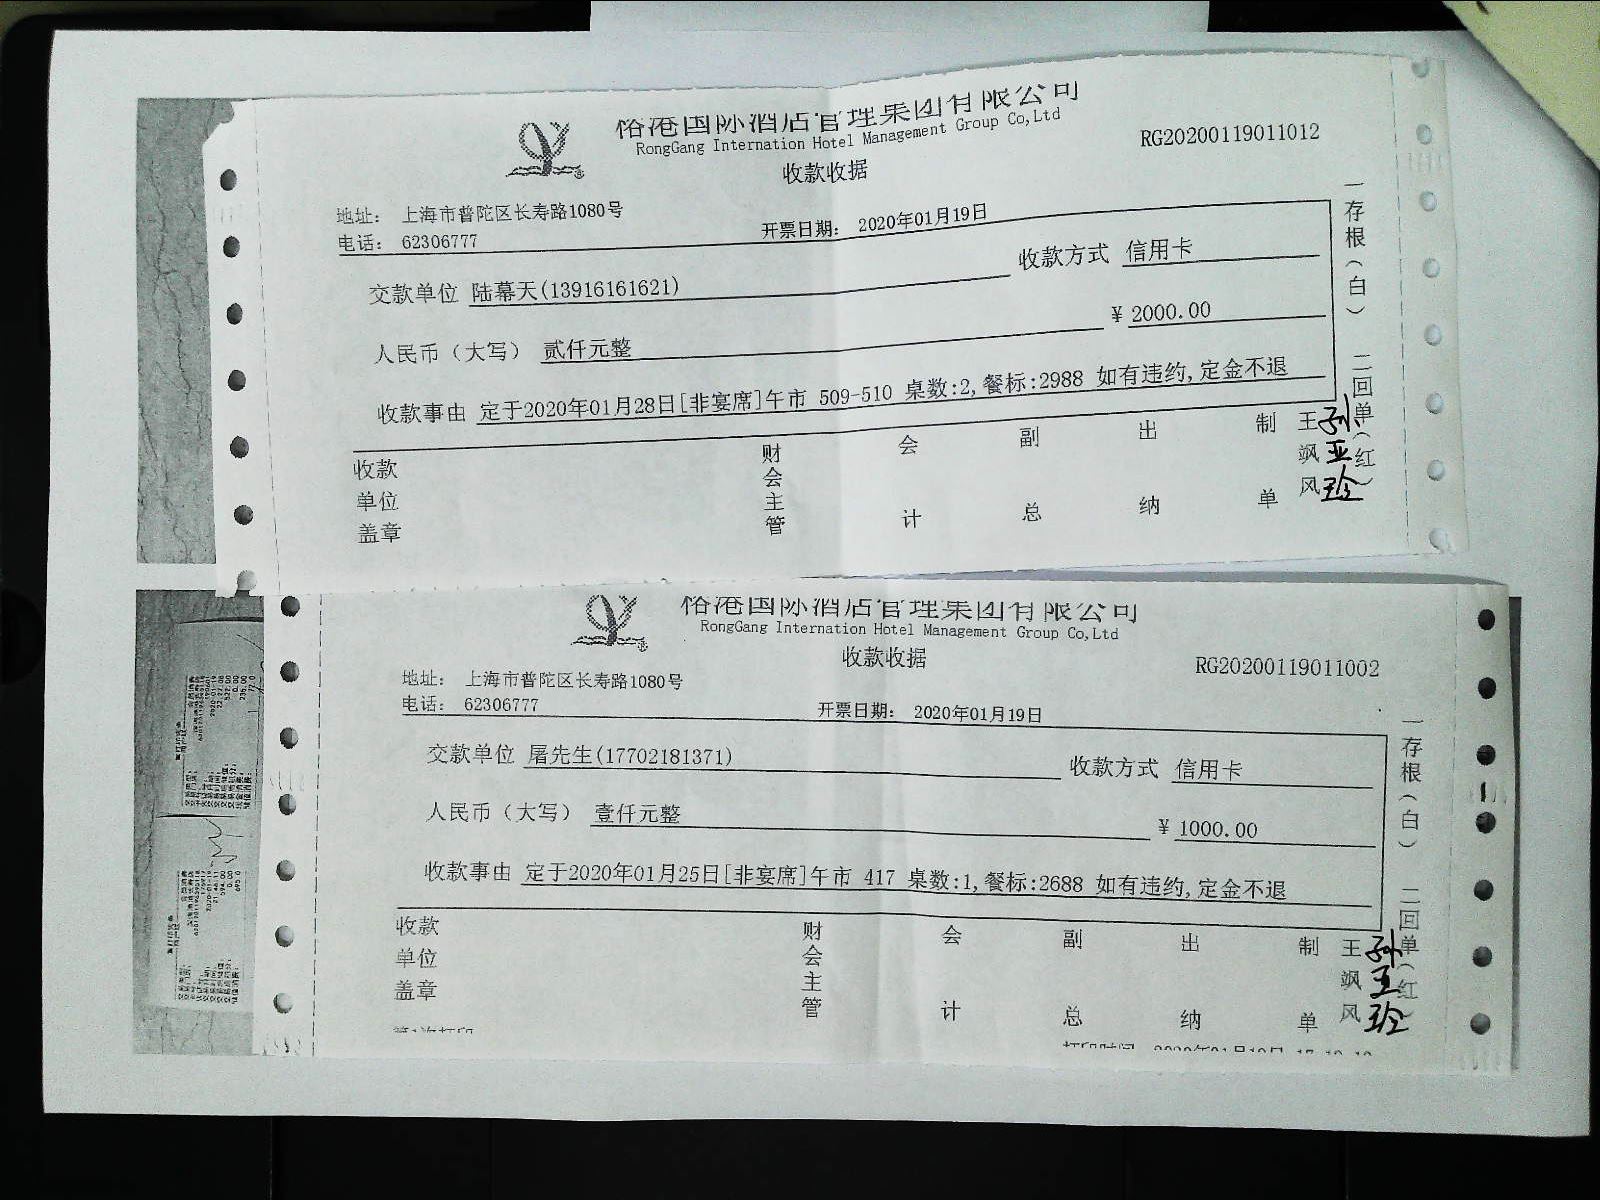 裕港国际酒店管理集团有限公司
RongGang Internation Hotel Management Group Co,Ltd
收款收据
RG20200119011012
地址： 上海市普陀区长寿路1080号
电话： 62306777
开票日期： 2020年01月19日
交款单位 陆幕天(13916161621)
收款方式 信用卡
人民币（大写） 贰仟元整
¥ 2000.00
收款事由 定于2020年01月28日[非宴席]午市 509-510 桌数:2,餐标:2988 如有违约,定金不退
收款单位盖章
财会主管
会计
副总
出纳
制单
王飒风
孙亚玲
一存根（白） 二回单（红）
裕港国际酒店管理集团有限公司
RongGang Internation Hotel Management Group Co,Ltd
收款收据
RG20200119011002
地址： 上海市普陀区长寿路1080号
电话： 62306777
开票日期： 2020年01月19日
交款单位 屠先生(17702181371)
收款方式 信用卡
人民币（大写） 壹仟元整
¥ 1000.00
收款事由 定于2020年01月25日[非宴席]午市 417 桌数:1,餐标:2688 如有违约,定金不退
收款单位盖章
财会主管
会计
副总
出纳
制单
王飒风
孙亚玲
一存根（白） 二回单（红）